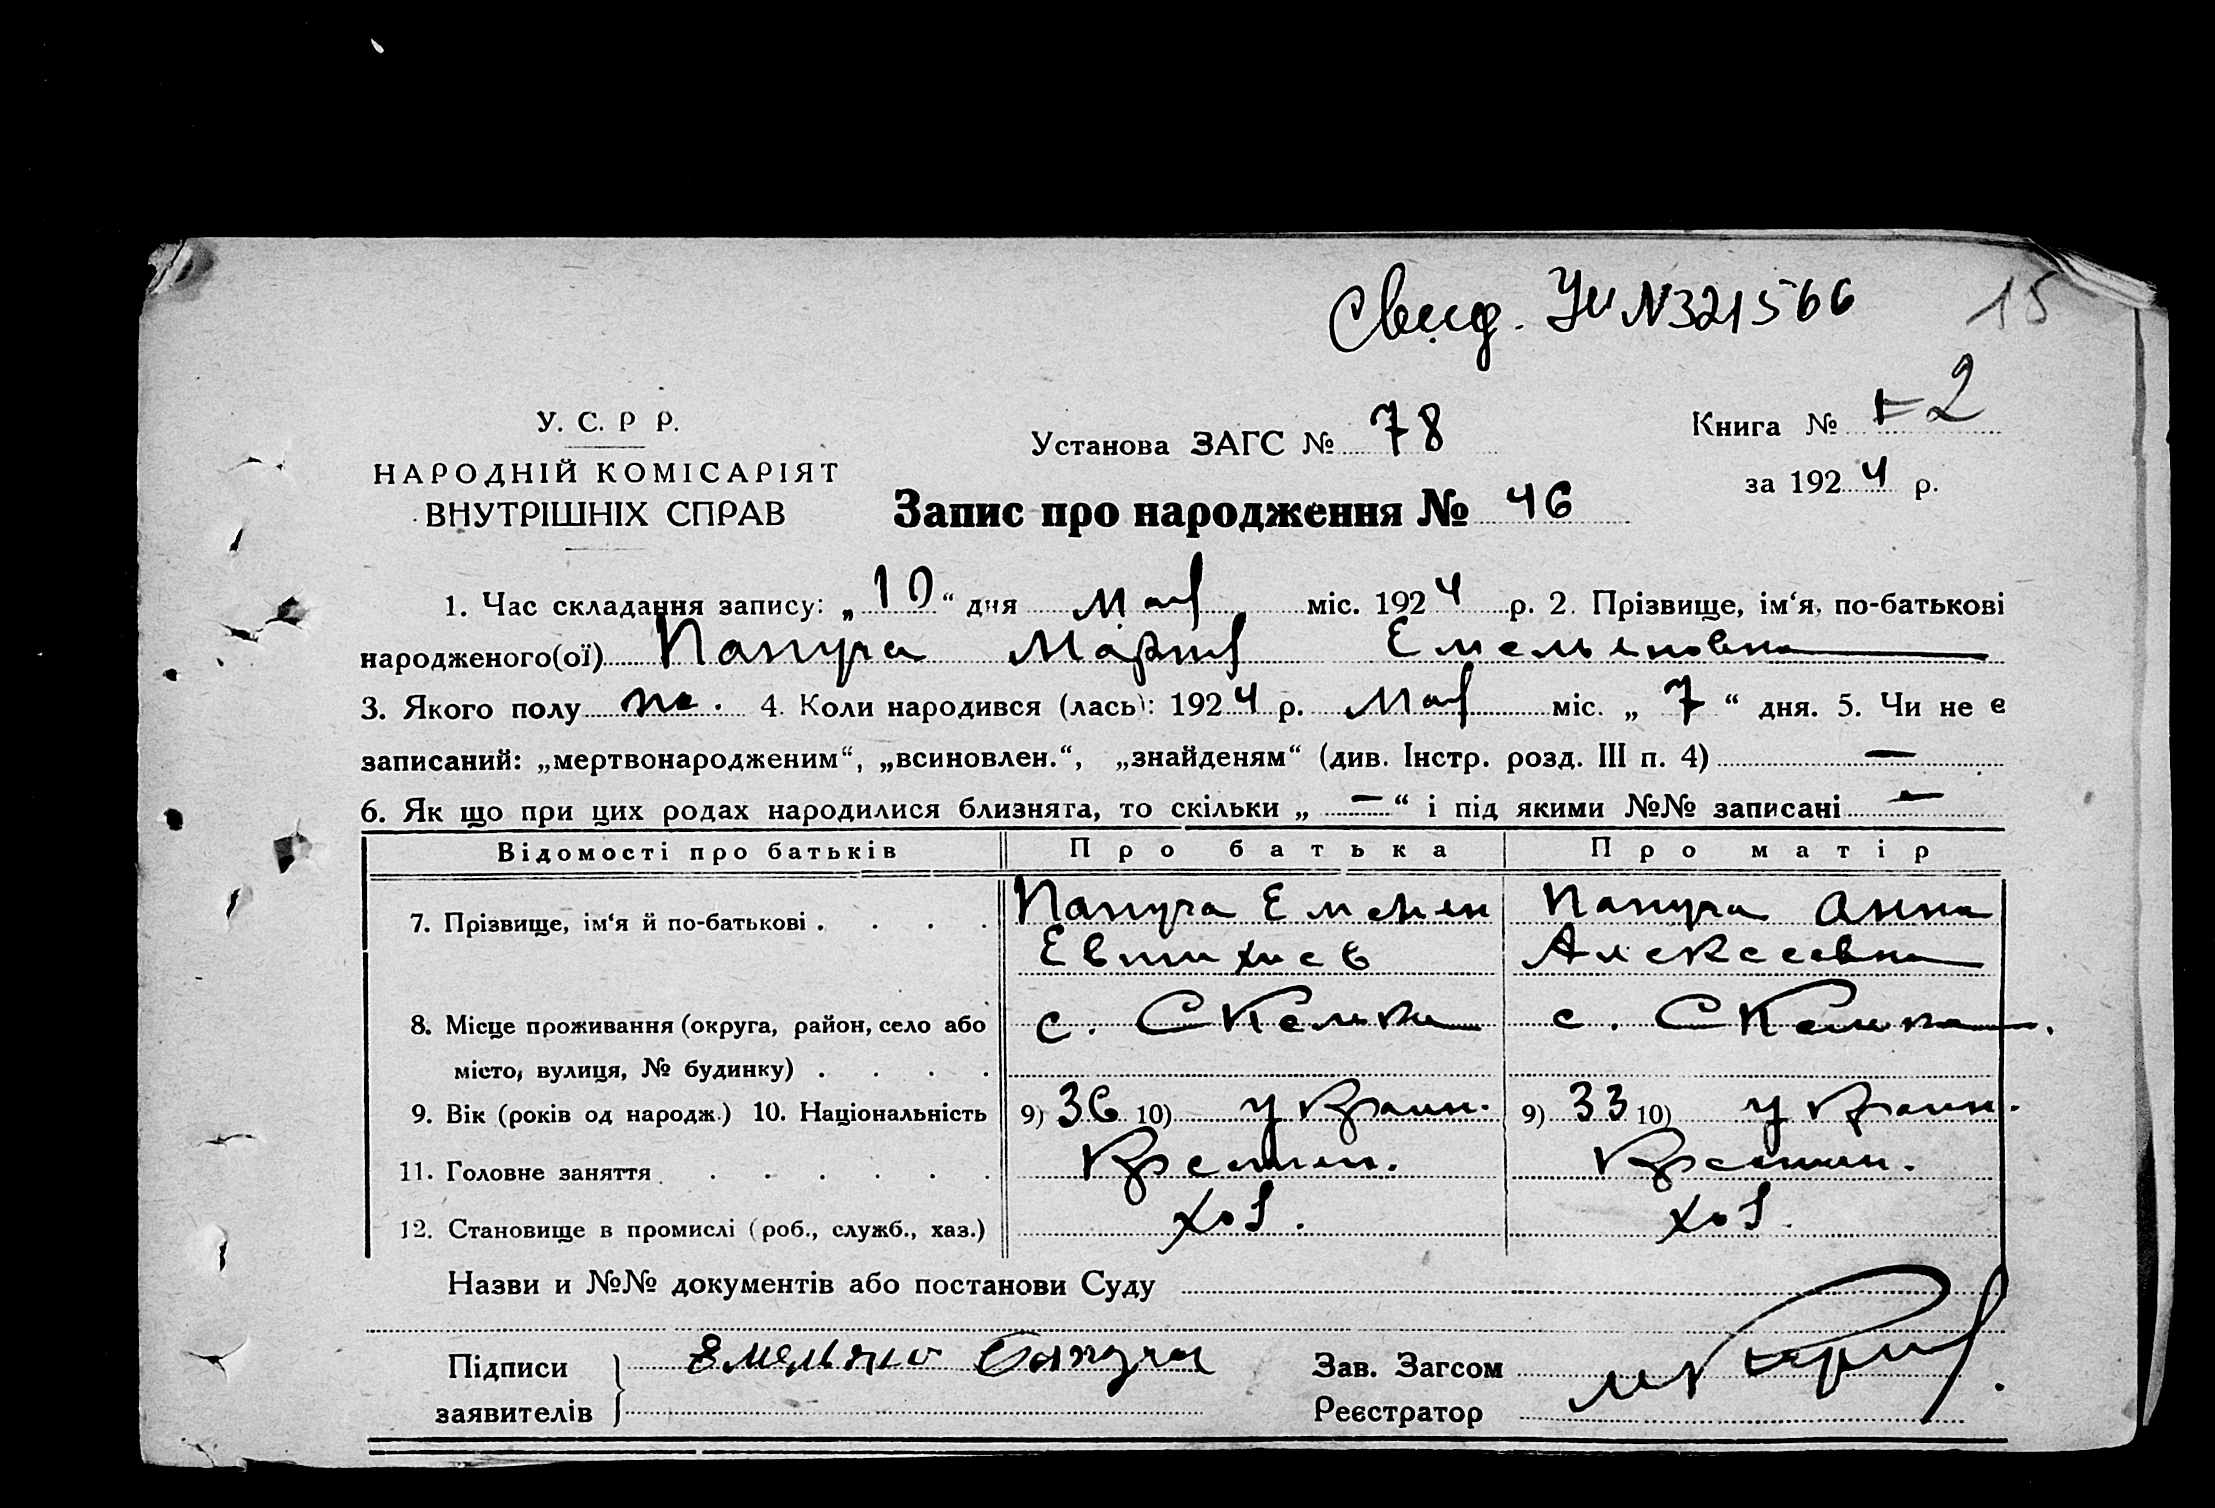 Свид. Ум N321566 15
У. С. Р Р.
НАРОДНІЙ КОМІСАРІЯТ
ВНУТРІШНІХ СПРАВ
Установа ЗАГС № 78
Книга № 2
за 1924 р.
Запис про народження № 46
1. Час складання запису: „ 10 “ дня мая міс. 1924 р. 2. Прізвище, ім‘я, по-батькові
народженого(ої) Папуча Мария Емельяновна
3. Якого полу же. 4. Коли народився (лась): 1924 р. Мая міс. „ 7 “ дня. 5. Чи не є
записаний: „мертвонародженим“, „всиновлен.“, „знайденям“ (див. Інстр. розд. III п. 4) —
6. Як що при цих родах народилися близняга, то скільки „ — “ і під якими №№ записані —
Відомості про батьків Про батька Про матір
7. Прізвище, ім‘я й по-батькові . . . . Папуча Емельян Папуча Анна
Евтихиев Алексеевна
8. Місце проживання (округа, район, село або с. Скельки с. Скельки.
місто, вулиця, № будинку) . . . .
9. Вік (років од народж.) 10. Національність 9) 36 10) украин. 9) 33 10) украин.
11. Головне заняття . . . . . . Крестьян. Крестьян.
12. Становище в промислі (роб., служб., хаз.) хоз. хоз.
Назви и №№ документів або постанови Суду
Підписи Емельян Папуча Зав. Загсом
заявителів Реєстратор